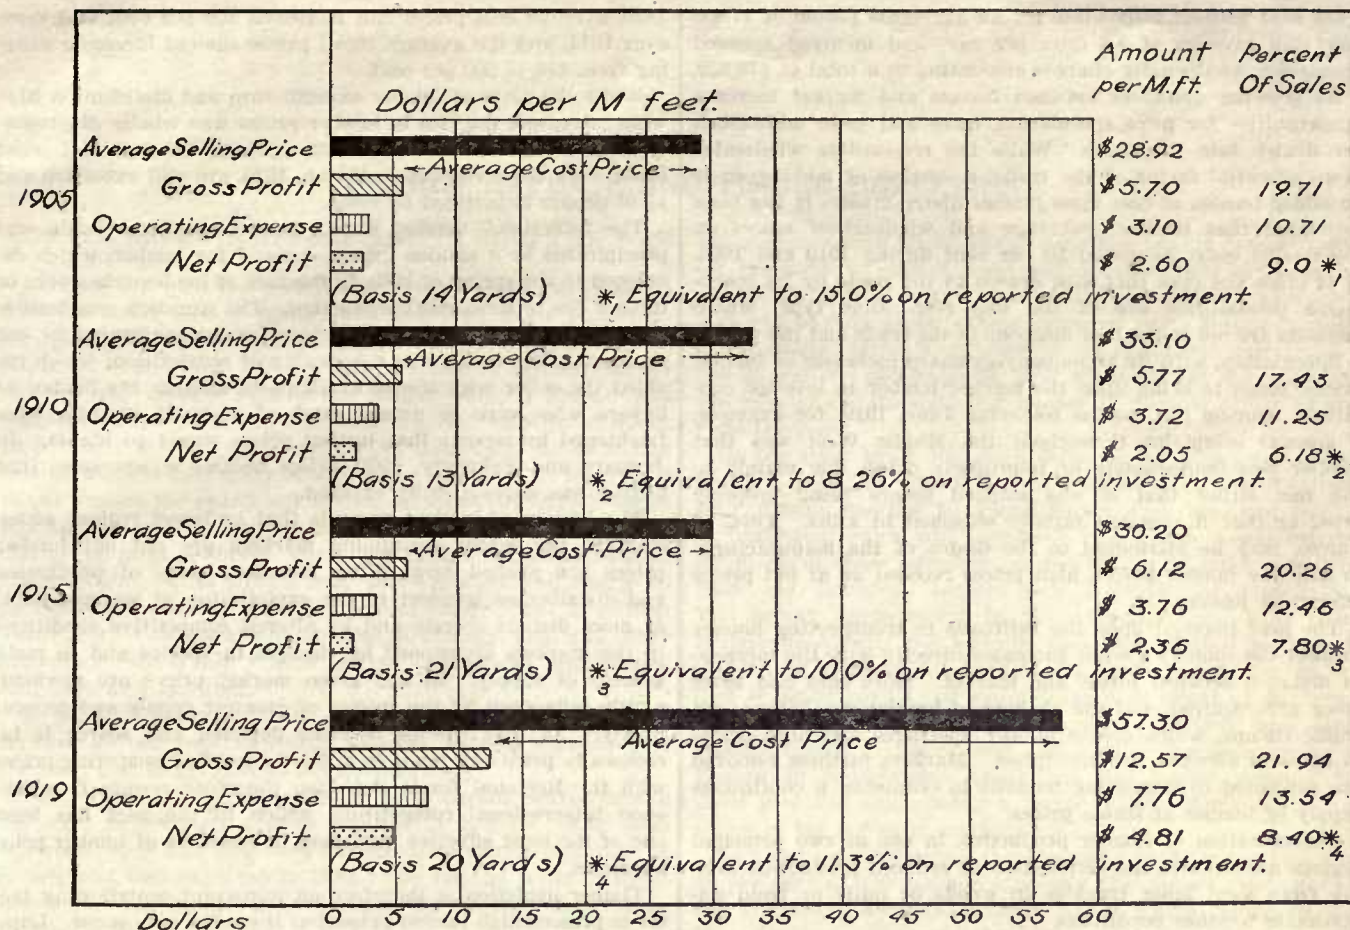 Amount Percent
per M.ft. Of Sales
Dollars per M feet.
1905
Average Selling Price $28.92
←Average Cost Price→
Gross Profit $5.70 19.71
Operating Expense $3.10 10.71
Net Profit $2.60 9.0 *1
(Basis 14 Yards) *1 Equivalent to 15.0% on reported investment.
1910
Average Selling Price $33.10
←Average Cost Price →
Gross Profit $5.77 17.43
Operating Expense $3.72 11.25
Net Profit $2.05 6.18 *2
(Basis 13 Yards) *2 Equivalent to 8.26% on reported investment.
1915
Average Selling Price $30.20
←Average Cost Price→
Gross Profit $6.12 20.26
Operating Expense $3.76 12.46
Net Profit $2.36 7.80 *3
(Basis 21 Yards) *3 Equivalent to 10.0% on reported investment.
1919
Average Selling Price $57.30
← Average Cost Price →
Gross Profit $12.57 21.94
Operating Expense $7.76 13.54
Net Profit $4.81 8.40 *4
(Basis 20 Yards) *4 Equivalent to 11.3% on reported investment.
Dollars 0 5 10 15 20 25 30 35 40 45 50 55 60